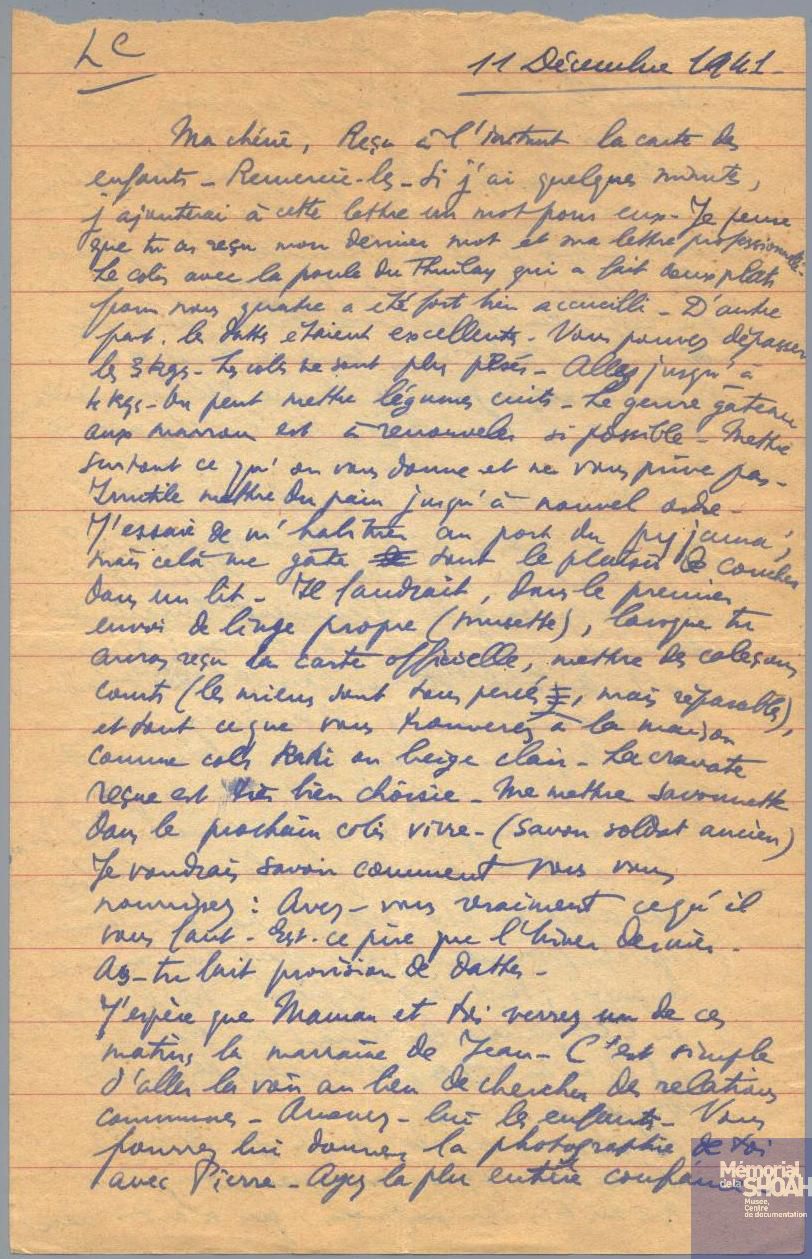 LC
11 Décembre 1941-
Ma chérie, Reçu à l'instant la carte des
enfants - Remercie-les - Si j'ai quelques minutes,
j'ajouterai à cette lettre un mot pour eux - Je pense
que tu as reçu mon dernier mot et ma lettre professionnelle -
Le colis avec la poule du Thuilay qui a fait deux plats
pour nous quatre a été fort bien accueilli - D'autre
part, les dattes étaient excellentes - Vous pouvez dépasser
les 3 kgs - Les colis ne sont plus pesés - Allez jusqu'à
4 kgs - On peut mettre légumes cuits - Le genre gâteau
aux marrons est à renouveler si possible - Mettre
surtout ce qu'on vous donne et ne vous prive pas -
Inutile mettre du pain jusqu'à nouvel ordre -
J'essaie de m'habituer au port du pyjama,
mais celà me gâte tout le plaisir de coucher
dans un lit - Il faudrait, dans le premier
envoi de linge propre (musette), lorsque tu
auras reçu la carte officielle, mettre des caleçons
courts (les miens sont tous percés, mais réparables),
et tout ce que vous trouverez à la maison
comme cols kaki ou beige clair - La cravate
reçue est très bien choisie - Me mettre savonnette
dans le prochain colis vivre - (savon soldat ancien)
Je voudrais savoir comment vous vous
nourrissez : Avez-vous vraiment ce qu'il
vous faut - Est-ce pire que l'hiver dernier -
As-tu fait provision de dattes -
J'espère que Maman et toi verrez un de ces
matins la marraine de Jean - C'est simple
d'aller la voir au lieu de chercher des relations
communes - Amenez-lui les enfants - Vous
pourrez lui donner la photographie de toi
avec Pierre - Ayez la plus entière confiance
Mémorial
de la SHOAH
Musée,
Centre
de documentation